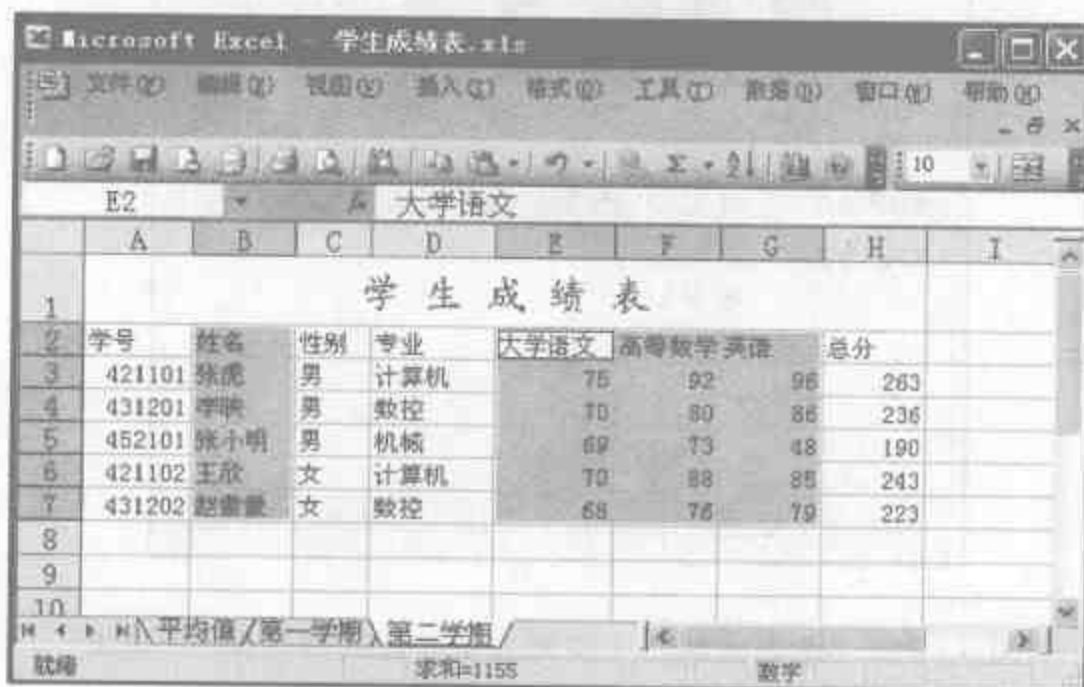 Microsoft Excel - 学生成绩表.xls
文件(F) 编辑(E) 视图(V) 插入(I) 格式(O) 工具(T) 数据(D) 窗口(W) 帮助(H)
10
E2 fx 大学语文
A B C D E F G H I
1 学生成绩表
2 学号 姓名 性别 专业 大学语文 高等数学 英语 总分
3 421101 张虎 男 计算机 75 92 96 263
4 431201 李映 男 数控 70 80 86 236
5 452101 张小明 男 机械 69 73 48 190
6 421102 王欣 女 计算机 70 88 85 243
7 431202 女 数控 68 76 79 223
8
9
10
平均值 第一学期 第二学期
就绪 求和=1155 数字